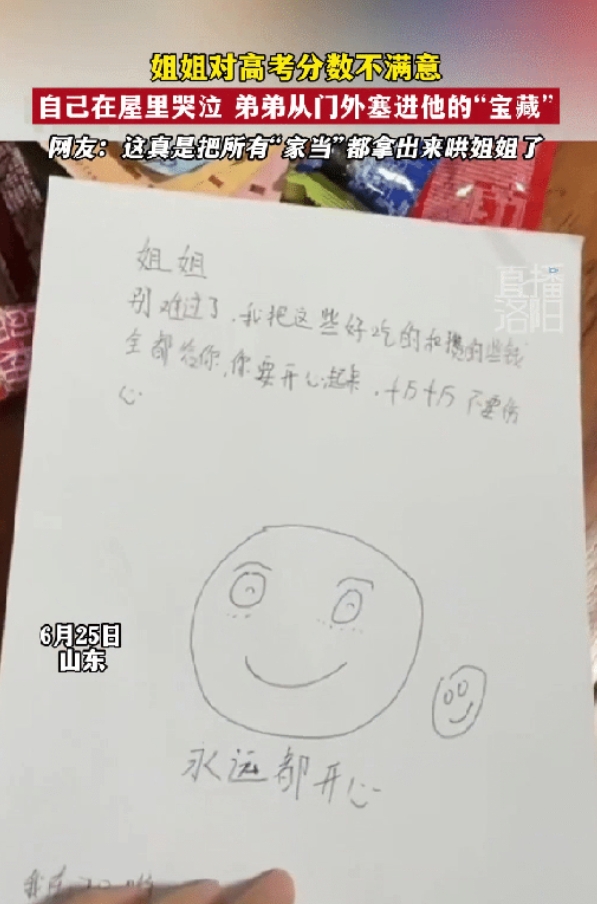 姐姐对高考分数不满意
自己在屋里哭泣 弟弟从门外塞进他的“宝藏”
网友：这真是把所有“家当”都拿出来哄姐姐了
直播
洛阳
姐姐
别难过了,我把这些好吃的和攒的些钱
全都给你,你要开心起来,千万千万不要伤
心
6月25日
山东
永远都开心